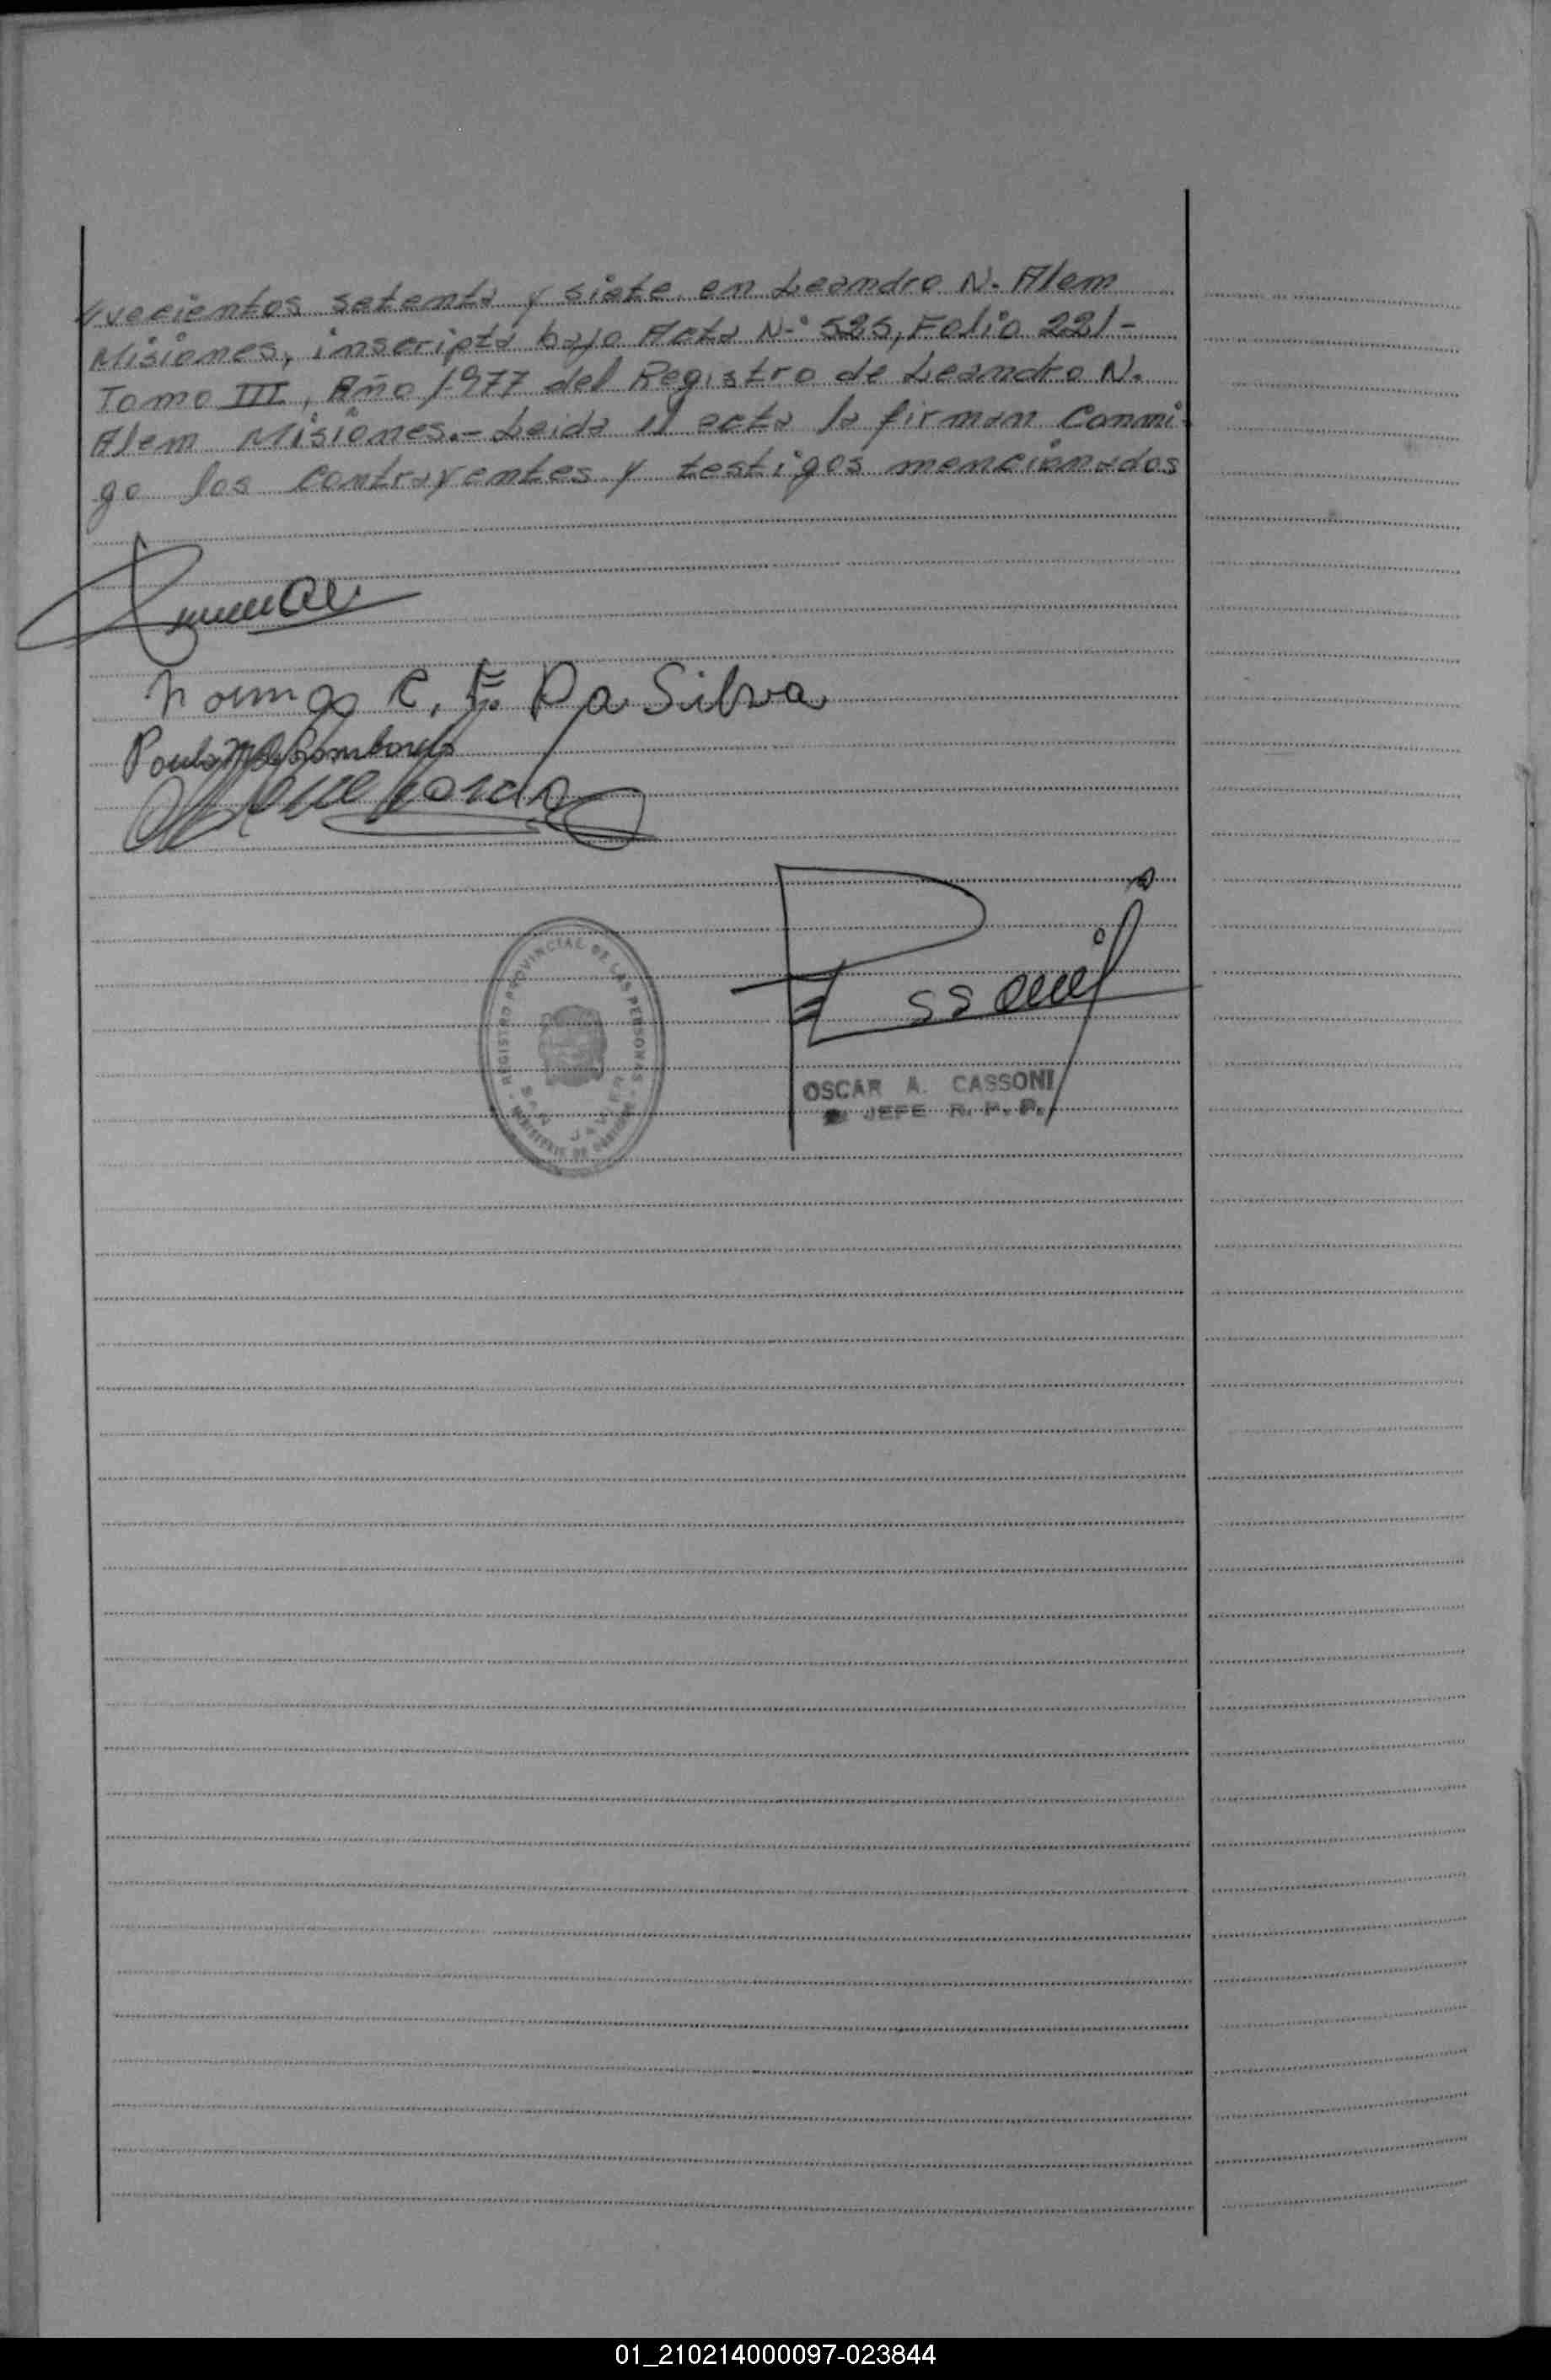 vecientos setenta y siete en Leandro N. Alem
Misiones, inscripta bajo Acta N-° 525, Folio 221-
Tomo III, Año 1977 del Registro de Leandro N.
Alem Misiones.- Leida el acta la firman Conmi-
go los contrayentes y testigos mencionados
Norma R. F. Da Silva
REGISTRO PROVINCIAL DE LAS PERSONAS
SAN JAVIER
OSCAR A. CASSONI
JEFE R. P. P.
01_210214000097-023844